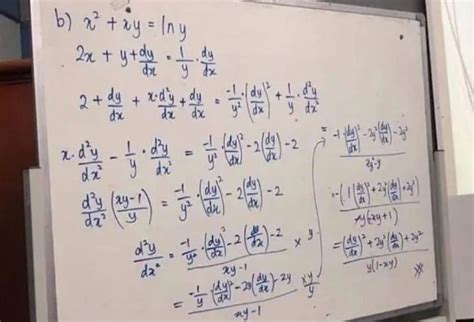 b) x² + xy = ln y
2x + y + dy/dx = 1/y · dy/dx
2 + dy/dx + x·d²y/dx² + dy/dx = -1/y² · (dy/dx)² + 1/y · d²y/dx²
x · d²y/dx² - 1/y · d²y/dx² = -1/y² · (dy/dx)² - 2(dy/dx) - 2
d²y/dx² (xy-1/y) = -1/y² · (dy/dx)² - 2(dy/dx) - 2
d²y/dx² = -1/y² · (dy/dx)² - 2(dy/dx) - 2 / xy-1 × y
= -1/y · (dy/dx)² - 2y(dy/dx) - 2y / xy-1 × y/y
= -1·(dy/dx)² - 2y²(dy/dx) - 2y² /
= -(1(dy/dx)² + 2y²(dy/dx) + 2y²) /
= (dy/dx)² + 2y²(dy/dx) + 2y² / y(1-xy)